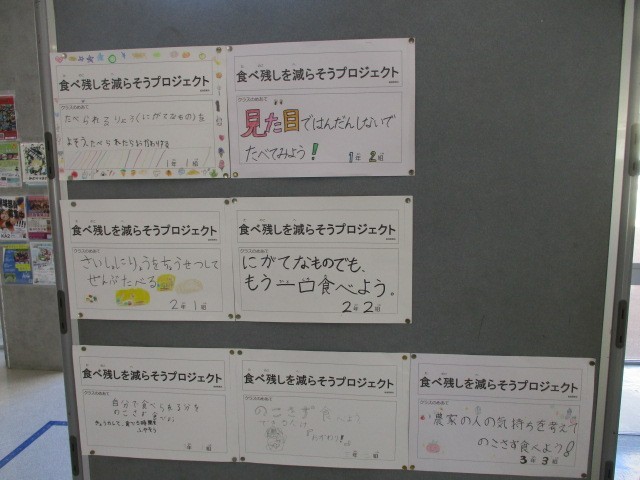 食べ残しを減らそうプロジェクト
クラスのめあて
たべられるりょう(にがてなもの)を
よそう。たべられたらおかわりする
1年 1組
食べ残しを減らそうプロジェクト
クラスのめあて
見た目ではんだんしないで
たべてみよう!
1年 2組
食べ残しを減らそうプロジェクト
クラスのめあて
さいしょにりょうをちょうせつして
ぜんぶたべる
2年 1組
食べ残しを減らそうプロジェクト
クラスのめあて
にがてなものでも、
もう一口食べよう。
2年 2組
食べ残しを減らそうプロジェクト
クラスのめあて
自分で食べられる分を
のこさず食べよう
食べる時間を
ふやそう
食べ残しを減らそうプロジェクト
クラスのめあて
のこさず食べよう
食べ残しを減らそうプロジェクト
クラスのめあて
農家の人の気持ちを考えて
のこさず食べよう!
3年 3組